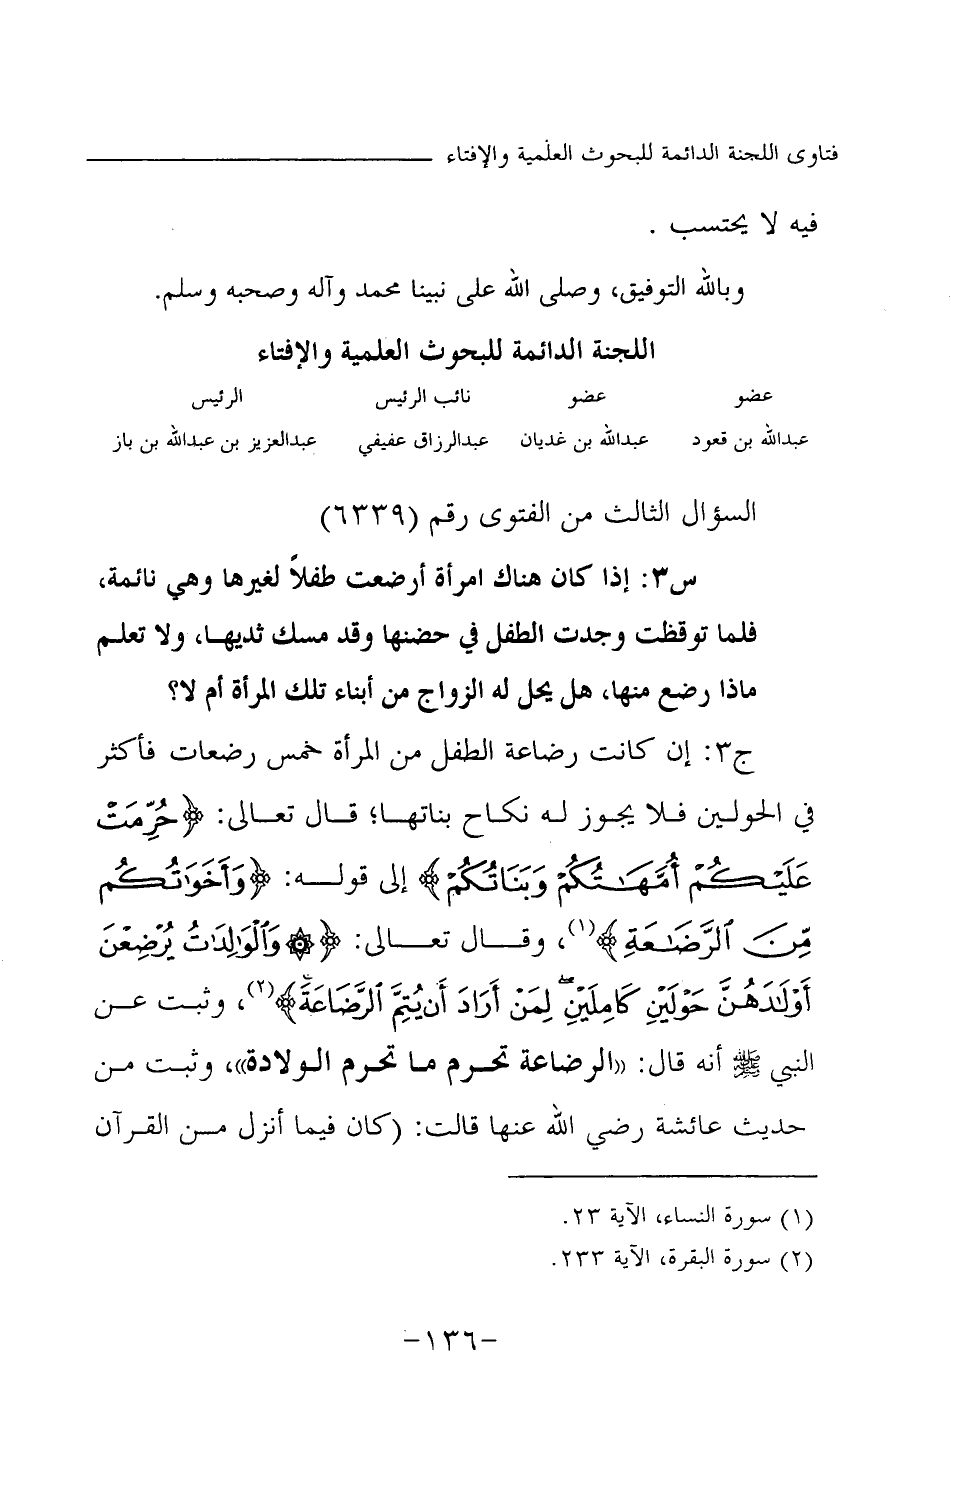 فتاوى اللجنة الدائمة للبحوث العلمية والإفتاء
فيه لا يحتسب .
وبالله التوفيق، وصلى الله على نبينا محمد وآله وصحبه وسلم.
اللجنة الدائمة للبحوث العلمية والإفتاء
عضو عضو نائب الرئيس الرئيس
عبدالله بن قعود عبدالله بن غديان عبدالرزاق عفيفي عبدالعزيز بن عبدالله بن باز
السؤال الثالث من الفتوى رقم (٦٣٣٩)
س٣: إذا كان هناك امرأة أرضعت طفلاً لغيرها وهي نائمة،
فلما توقظت وجدت الطفل في حضنها وقد مسك ثديهـا، ولا تعلـم
ماذا رضع منها، هل يحل له الزواج من أبناء تلك المرأة أم لا؟
ج٣: إن كانت رضاعة الطفل من المرأة خمس رضعات فأكثر
في الحولـين فـلا يجـوز لـه نكـاح بناتهـا؛ قـال تعـالى: ﴿حُرِّمَتْ
عَلَيْكُمْ أُمَّهَٰتُكُمْ وَبَنَاتُكُمْ﴾ إلى قولـه: ﴿وَأَخَوَٰتُكُم
مِّنَ ٱلرَّضَٰعَةِ﴾(١)، وقـال تعـالى: ﴿۞ وَٱلْوَٰلِدَٰتُ يُرْضِعْنَ
أَوْلَٰدَهُنَّ حَوْلَيْنِ كَامِلَيْنِۖ لِمَنْ أَرَادَ أَن يُتِمَّ ٱلرَّضَاعَةَۚ﴾(٢)، وثبـت عـن
النبي ﷺ أنه قال: «الرضاعة تحـرم مـا تحرم الـولادة»، وثبـت مـن
حديث عائشة رضي الله عنها قالت: (كان فيما أنزل مـن القـرآن
(١) سورة النساء، الآية ٢٣.
(٢) سورة البقرة، الآية ٢٣٣.
-١٣٦-